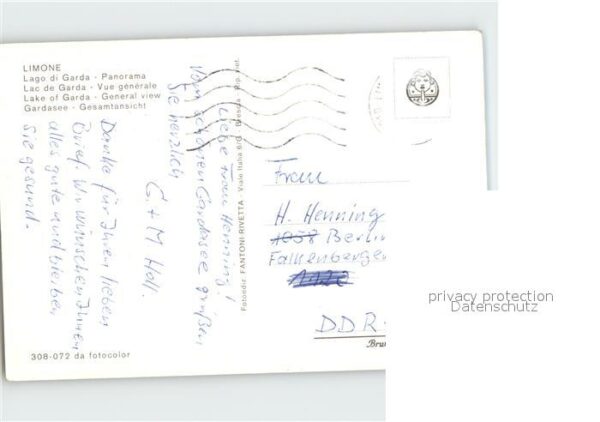 LIMONE
Lago di Garda - Panorama
Lac de Garda - Vue générale
Lake of Garda - General view
Gardasee - Gesamtansicht
Liebe Frau Henning!
Vom schönen Gardasee grüßen
Sie herzlich
G. + M Holl.
Danke für Ihren lieben
Brief. Wir wünschen Ihnen
alles gute und bleiben
Sie gesund.
Fotoedir. FANTONI-RIVETTA - Viale Italia 6/G - Brescia - Rip. int.
Frau
H. Henning
1058 Berlin
Falkenberger
DDR-
308-072 da fotocolor
privacy protection
Datenschutz